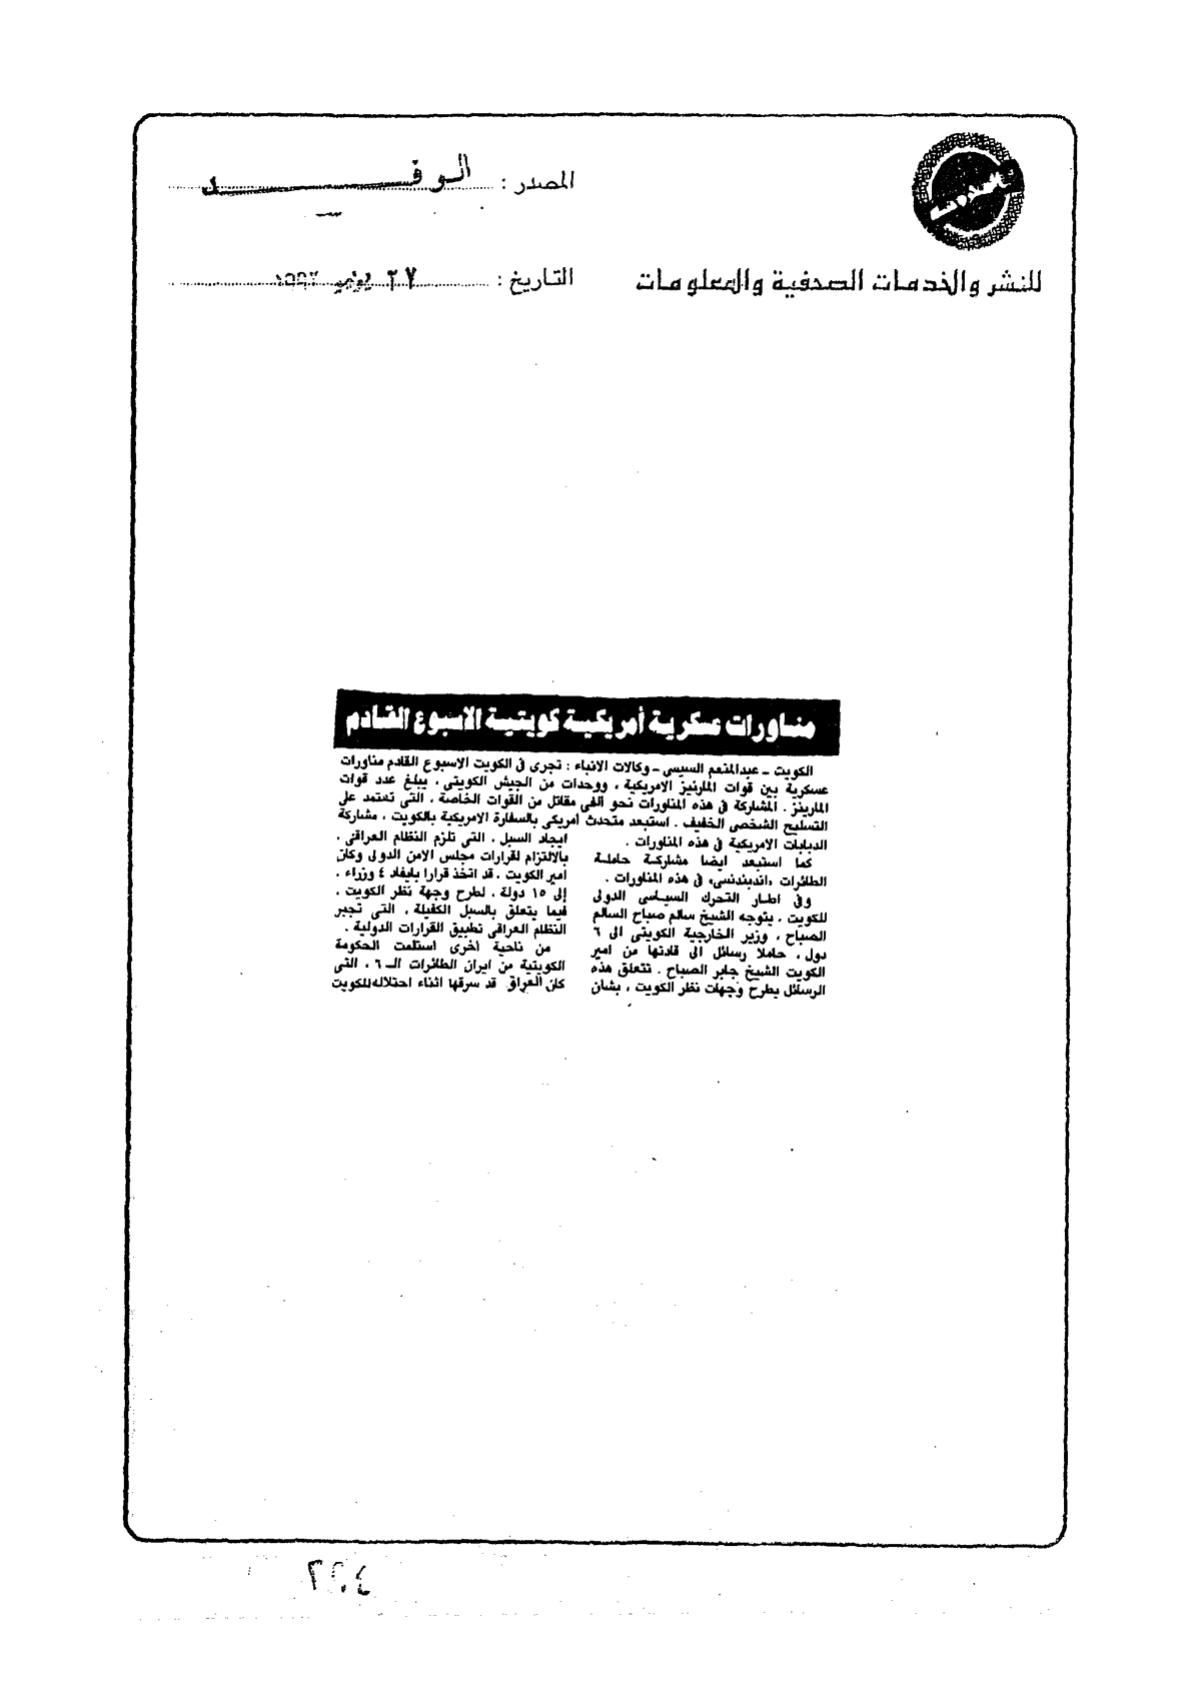 المصدر : الوفد
للنشر والخدمات الصحفية والمعلومات
التاريخ : ٢٧ يونيو ١٩٩٢
مناورات عسكرية أمريكية كويتية الاسبوع القادم
الكويت - عبدالمنعم السيسى - وكالات الانباء : تجرى فى الكويت الاسبوع القادم مناورات
عسكرية بين قوات المارنيز الامريكية ، ووحدات من الجيش الكويتى . يبلغ عدد قوات
المارينز . المشاركة فى هذه المناورات نحو الفى مقاتل من القوات الخاصة ، التى تعتمد على
التسليح الشخصى الخفيف . استبعد متحدث امريكى بالسفارة الامريكية بالكويت ، مشاركة
الدبابات الامريكية فى هذه المناورات .
كما استبعد ايضا مشاركة حاملة
الطائرات «اندبندنسى» فى هذه المناورات .
وفى اطار التحرك السياسى الدولى
للكويت ، يتوجه الشيخ سالم صباح السالم
الصباح ، وزير الخارجية الكويتى الى ٦
دول ، حاملا رسائل الى قادتها من امير
الكويت الشيخ جابر الصباح . تتعلق هذه
الرسائل بطرح وجهات نظر الكويت ، بشان
ايجاد السبل ، التى تلزم النظام العراقى ،
بالالتزام لقرارات مجلس الامن الدولى وكان
امير الكويت ، قد اتخذ قرارا بايفاد ٤ وزراء ،
إلى ١٥ دولة ، لطرح وجهة نظر الكويت ،
فيما يتعلق بالسبل الكفيلة ، التى تجبر
النظام العراقى تطبيق القرارات الدولية .
من ناحية اخرى استلمت الحكومة
الكويتية من ايران الطائرات الـ ٦ ، التى
كان العراق قد سرقها اثناء احتلاله للكويت